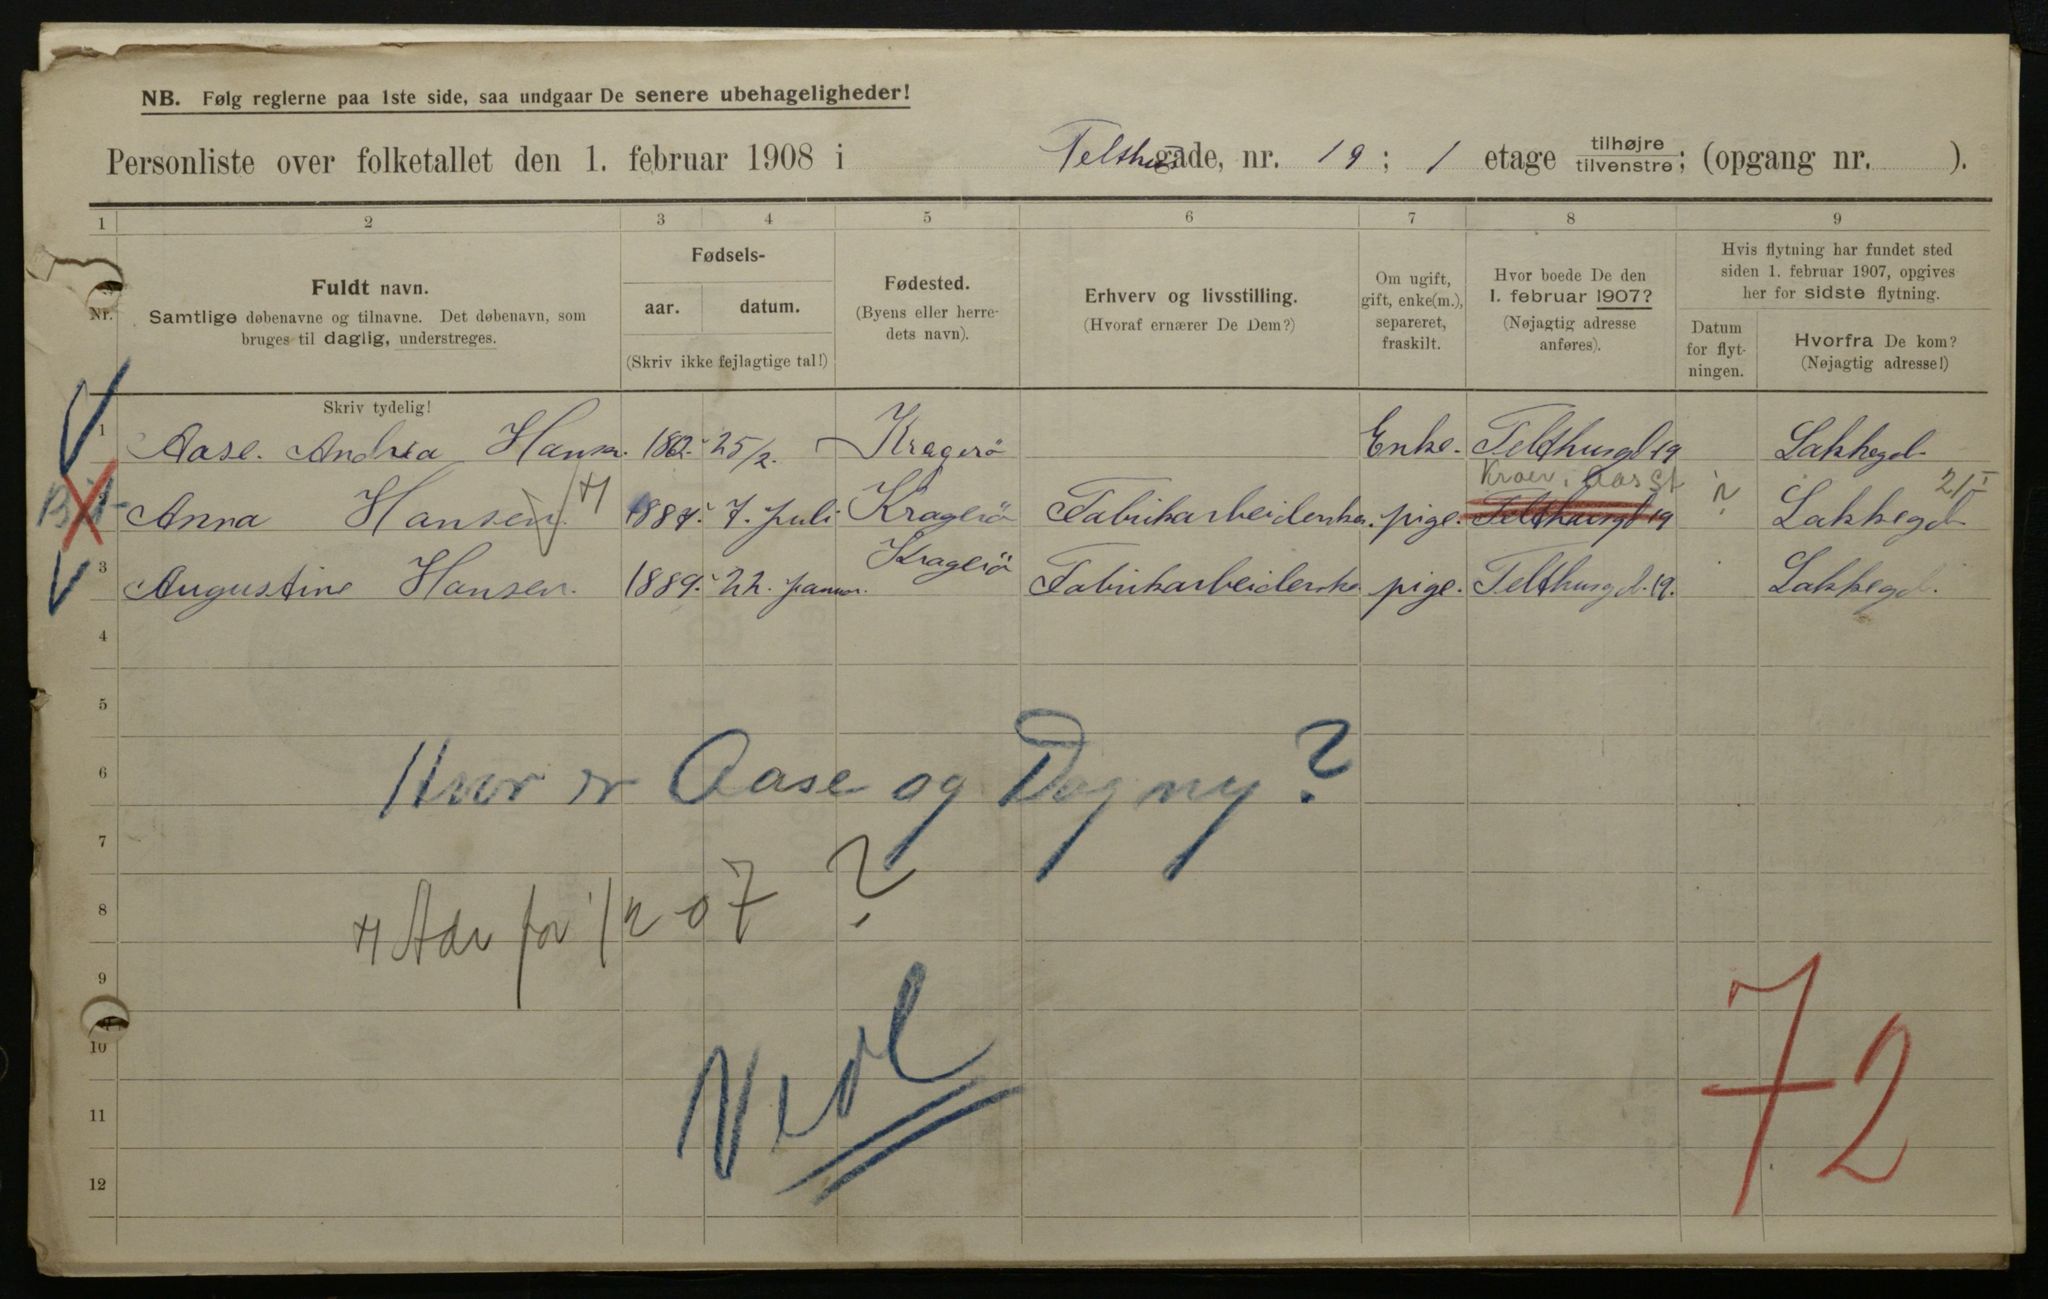 NB. Følg reglerne paa 1ste side, saa undgaar De senere ubehageligheder!
Personliste over folketallet den 1. februar 1908 i Telthusgade, nr. 19; 1 etage tilhøjre tilvenstre; (opgang nr. ).
1 2 3 4 5 6 7 8 9
Nr.
Fuldt navn.
Samtlige døbenavne og tilnavne. Det døbenavn, som
bruges til daglig, understreges.
Skriv tydelig!
Fødsels-
aar. datum.
(Skriv ikke fejlagtige tal!)
Fødested.
(Byens eller herre-
dets navn).
Erhverv og livsstilling.
(Hvoraf ernærer De Dem?)
Om ugift,
gift, enke(m.),
separeret,
fraskilt.
Hvor boede De den
1. februar 1907?
(Nøjagtig adresse
anføres).
Hvis flytning har fundet sted
siden 1. februar 1907, opgives
her for sidste flytning.
Datum
for flyt-
ningen.
Hvorfra De kom?
(Nøjagtig adresse!)
1 Aase. Andrea Hansen. 1862. 25/2. Kragerö Enke. Telthusgd 19 Lakkegd.
Kroer i Aas St 21/I
2 Anna Hansen. 1887. 7. juli Kragerö Fabrikarbeiderske. pige. Telthusgd 19 ? Lakkegd
3 Augustine Hansen. 1889. 22. januar. Kragerö Fabrikarbeiderske pige. Telthusgd. 19. Lakkegd.
4
5
6 Hvor er Aase og Dagny?
7
8 Adr for 1/2 07 ?
9
10
11 Vedl
12
72